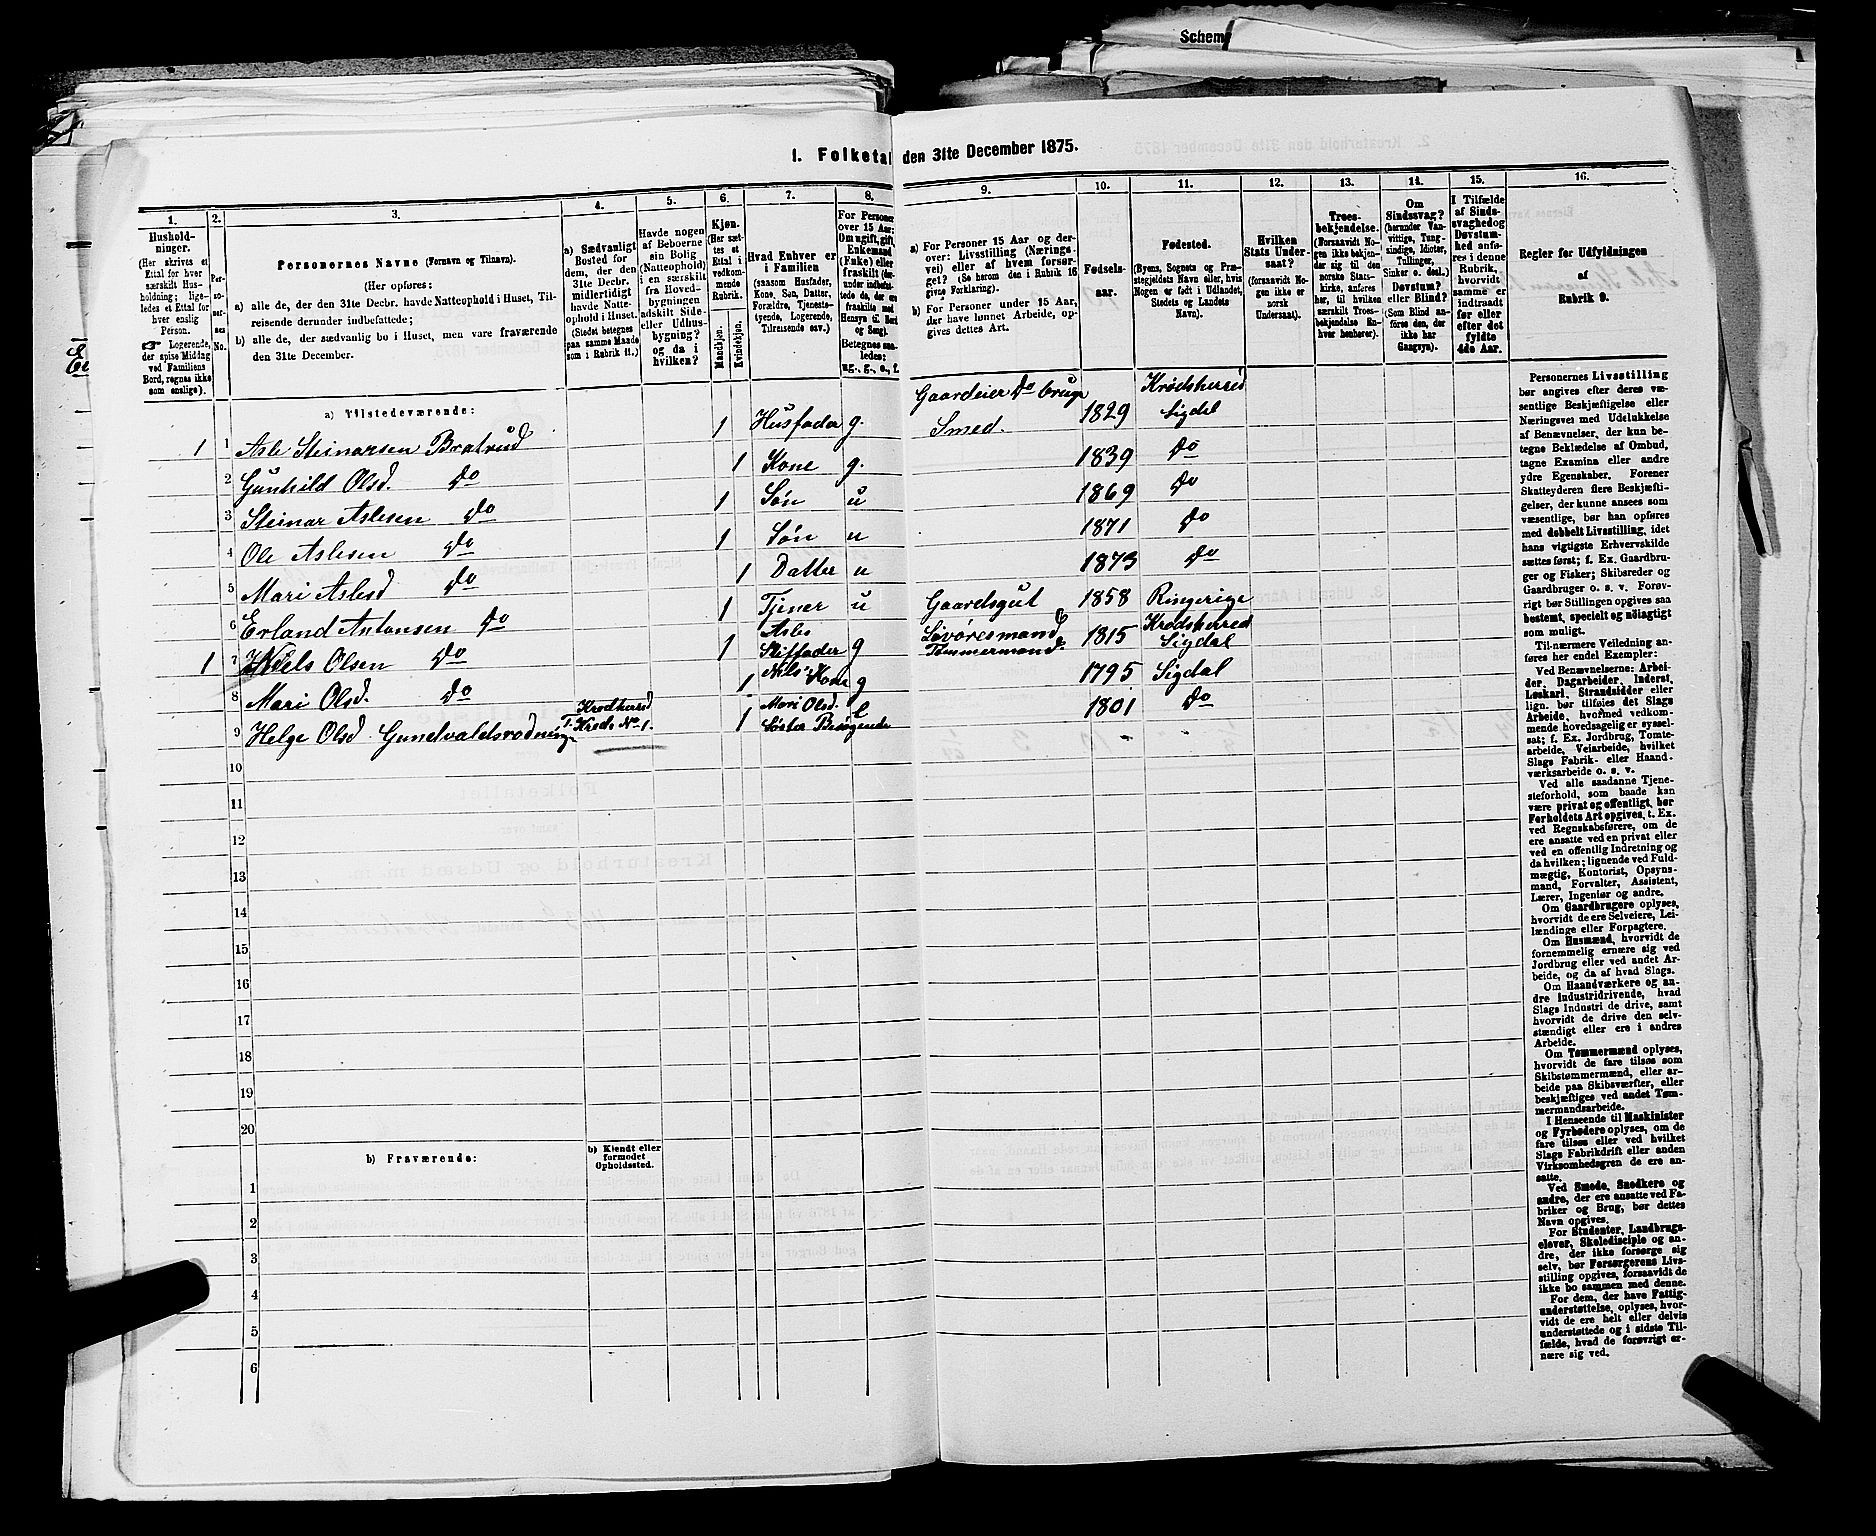 Schem
1. Folketal den 31te December 1875.
1.
Hushold-
ninger.
(Her skrives et
Ettal for hver
særskilt Hus-
holdning; lige-
ledes et Ettal for
hver enslig
Person.
☞ Logerende,
der spise Middag
ved Familiens
Bord, regnes ikke
som enslige).
2.
Per-
so-
ner-
nes
No.
3.
Personernes Navne (Fornavn og Tilnavn).
(Her opføres:
a) alle de, der den 31te Decbr. havde Natteophold i Huset, Til-
reisende derunder indbefattede;
b) alle de, der sædvanlig bo i Huset, men vare fraværende
den 31te December.
4.
a) Sædvanligt
Bosted for
dem, der den
31te Decbr.
midlertidigt
havde Natte-
ophold i Huset.
(Stedet betegnes
paa samme Maade
som i Rubrik 11.)
5.
Havde nogen
af Beboerne
sin Bolig
(Natteophold)
i en særskilt
fra Hoved-
bygningen
adskilt Side-
eller Udhus-
bygning?
og da i
hvilken?
6.
Kjøn.
(Her sæt-
tes et
Ettal i
vedkom-
mende
Rubrik.
Mandkjøn.
Kvindekjøn.
7.
Hvad Enhver er
i Familien
(saasom Husfader,
Kone, Søn, Datter,
Forældre, Tjeneste-
tyende, Logerende,
Tilreisende osv.)
8.
For Personer
over 15 Aar:
Om ugift, gift,
Enkemand
(Enke) eller
fraskilt (der-
under indbefat-
tede de, der ere
fraskilte med
Hensyn til Bord
og Seng).
Betegnes saa-
ledes:
ug., g., e., f.
9.
a) For Personer 15 Aar og der-
over: Livsstilling (Nærings-
vei) eller af hvem forsør-
get? (Se herom den i Rubrik 16
givne Forklaring).
b) For Personer under 15 Aar,
der have lønnet Arbeide, op-
gives dettes Art.
10.
Fødsels-
aar.
11.
Fødested.
(Byens, Sognets og Præ-
stegjeldets Navn eller, hvis
Nogen er født i Udlandet,
Stedets og Landets
Navn).
12.
Hvilken
Stats Under-
saat?
(forsaavidt No-
gen ikke er
norsk
Undersaat).
13.
Troes-
bekjendelse.
(Forsaavidt No-
gen ikke bekjen-
der sig til den
norske Stats-
kirke, anføres
her, til hvilken
særskilt Troes-
bekjendelse En-
hver henhører).
14.
Om
Sindssvag?
(herunder Van-
vittige, Tung-
sindige, Idioter,
Tullinger,
Sinker o. desl.)
Døvstum?
eller Blind?
(Som Blind an-
føres den, der
ikke har
Gangsyn).
15.
I Tilfælde
af Sinds-
svaghed og
Døvstum-
hed anfø-
res i denne
Rubrik,
hvorvidt
samme er
indtraadt
før eller
efter det
fyldte
4de Aar.
16.
Regler for Udfyldningen
af
Rubrik 9.
a) Tilstedeværende:
1 1 Asle Steinarsen Bratrud 1 Husfader g. Gaardeier Do brug Smed. 1829 Krødsherred Sigdal
2 Gunhild Olsd. Do 1 Kone g. 1839 Do
3 Steinar Aslesen Do 1 Søn u 1869 Do
4 Ole Aslesen Do 1 Søn u 1871 Do
5 Mari Aslesd Do 1 Datter u 1873 Do
6 Erland Antonsen Do 1 Tjener u Gaardsgut 1858 Ringerige
1 7 Niels Olsen Do 1 Asles Stiffader g Livøresmand Tømmermand 1815 Krødsherred Sigdal
8 Mari Olsd. Do 1 Nils' Kone g 1795 Sigdal
9 Helge Olsd Gundvaldsrodning Krødherred T. Kreds No 1. 1 Mari Olsd. Søster Besøgende 1801 Do
10
11
12
13
14
15
16
17
18
19
20
b) Fraværende:
b) Kjendt eller
formodet
Opholdssted.
1
2
3
4
5
6
Personernes Livsstilling
bør angives efter deres væ-
sentlige Beskjæftigelse eller
Næringsvei med Udelukkelse
af Benævnelser, der kun be-
tegne Beklædelse af Ombud,
tagne Examina eller andre
ydre Egenskaber. Forener
Skatteyderen flere Beskjæfti-
gelser, der kunne ansees som
væsentlige, bør han opføres
med dobbelt Livsstilling, idet
hans vigtigste Erhvervskilde
sættes først; f. Ex. Gaardbru-
ger og Fisker; Skibsreder og
Gaardbruger o. s. v. Forøv-
rigt bør Stillingen opgives saa
bestemt, specielt og nøiagtigt
som muligt.
Til nærmere Veiledning an-
føres her endel Exempler:
Ved Benævnelserne: Arbei-
der, Dagarbeider, Inderst,
Løskarl, Strandsidder eller
lign. bør tilføies det Slags
Arbeide, hvormed vedkom-
mende hovedsagelig er syssel-
sat; f. Ex. Jordbrug, Tomte-
arbeide, Veiarbeide, hvilket
Slags Fabrik- eller Haand-
værksarbeide o. s. v.
Ved alle saadanne Tjene-
steforhold, som baade kan
være privat og offentligt, bør
Forholdets Art opgives, t. Ex.
ved Regnskabsførere, om de
ere ansatte ved en privat eller
ved en offentlig Indretning og
da hvilken; lignende ved Fuld-
mægtig, Kontorist, Opsyns-
mand, Forvalter, Assistent,
Lærer, Ingeniør og andre.
Om Gaardbrugere oplyses,
hvorvidt de ere Selveiere, Lei-
lændinge eller Forpagtere.
Om Husmænd, hvorvidt de
fornemmelig ernære sig ved
Jordbrug eller ved andet Ar-
beide, og da af hvad Slags.
Om Haandværkere og an-
dre Industridrivende, hvad
Slags Industri de drive, samt
hvorvidt de drive den selv-
stændigt eller ere i andres
Arbeide.
Om Tømmermænd oplyses,
hvorvidt de fare tilsøs som
Skibstømmermænd, eller ar-
beide paa Skibsværfter, eller
beskjæftiges ved andet Tøm-
mermandsarbeide.
I Henseende til Maskinister
og Fyrbødere oplyses, om de
fare tilsøs eller ved hvilket
Slags Fabrikdrift eller anden
Virksomhedsgren de ere an-
satte.
Ved Smede, Snedkere og
andre, der ere ansatte ved Fa-
briker og Brug, bør dettes
Navn opgives.
For Studenter, Landbrugs-
elever, Skoledisciple og an-
dre, der ikke forsørge sig
selv, bør Forsørgerens Livs-
stilling opgives, forsaavidt de
ikke bo sammen med denne.
For dem, der have Fattig-
understøttelse, oplyses, hvor-
vidt de ere helt eller delvis
understøttede og i sidste Til-
fælde, hvad de forøvrigt er-
nære sig ved.